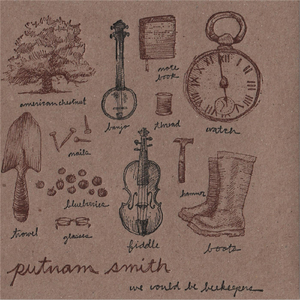 note
book
american chestnut
banjo
thread
watch
nails
blueberries
hammer
trowel
glasses
fiddle
boots
putnam smith
we would be beekeepers